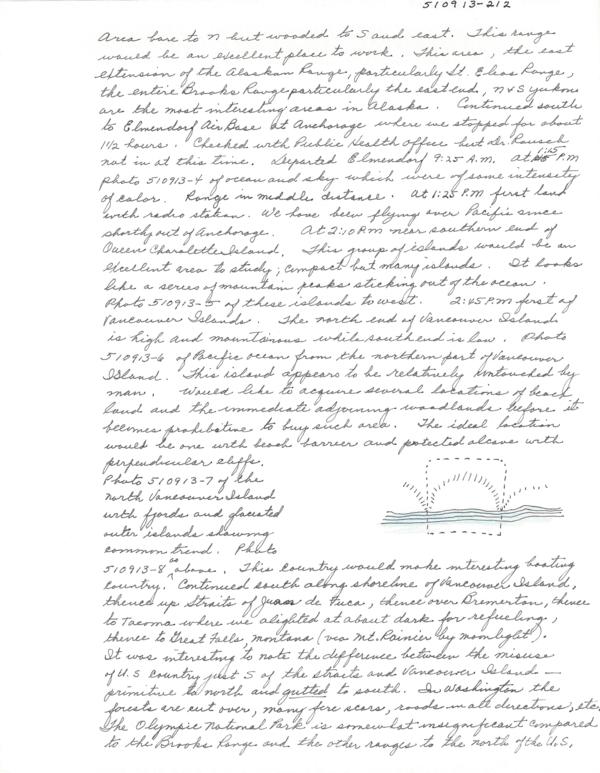 510913-212
Area bare to N but wooded to S and east. This range
would be an excellent place to work. This area, the east
extension of the Alaskan Range, particularly St. Elias Range,
the entire Brooks Range particularly the east end, N & S Yukon
are the most interesting areas in Alaska. Continued south
to Elmendorf Air Base at Anchorage where we stopped for about
1 1/2 hours. Checked with Public Health Office but Dr. Rausch
not in at this time. Departed Elmendorf 9:25 A.M. At 1:15 P.M
photo 510913-4 of ocean and sky which were of some intensity
of color. Range in middle distance. At 1:25 P.M. first land
with radio station. We have been flying over Pacific since
shortly out of Anchorage. At 2:10 P.M near southern end of
Queen Charalotte Island. This group of islands would be an
excellent area to study; compact but many islands. It looks
like a series of mountain peaks sticking out of the ocean.
Photo 510913-5 of these islands to west. 2:45 P.M first of
Vancouver Islands. The north end of Vancouver Island
is high and mountainous while south end is low. Photo
510913-6 of Pacific ocean from the northern part of Vancouver
Island. This island appears to be relatively untouched by
man. Would like to acquire several locations of beach
land and the immediate adjoining woodlands before it
becomes prohibitive to buy such area. The ideal location
would be one with beach barrier and protected alcove with
perpendicular cliffs.
Photo 510913-7 of the
north Vancouver Island
with fjords and glaciated
outer islands showing
common trend. Photo
510913-8 as above. This country would make interesting boating
country. Continued south along shoreline of Vancouver Island,
thence up Straits of Juan de Fuca, thence over Bremerton, thence
to Tacoma where we alighted at about dark for refueling,
thence to Great Falls, Montana (via Mt. Rainier by moonlight).
It was interesting to note the difference between the misuse
of U.S country just S of the straits and Vancouver Island —
primitive to north and gutted to south. In Washington the
forests are cut over, many fire scars, roads in all directions, etc.
The Olympic National Park is somewhat insignificant compared
to the Brooks Range and the other ranges to the north of the U.S.